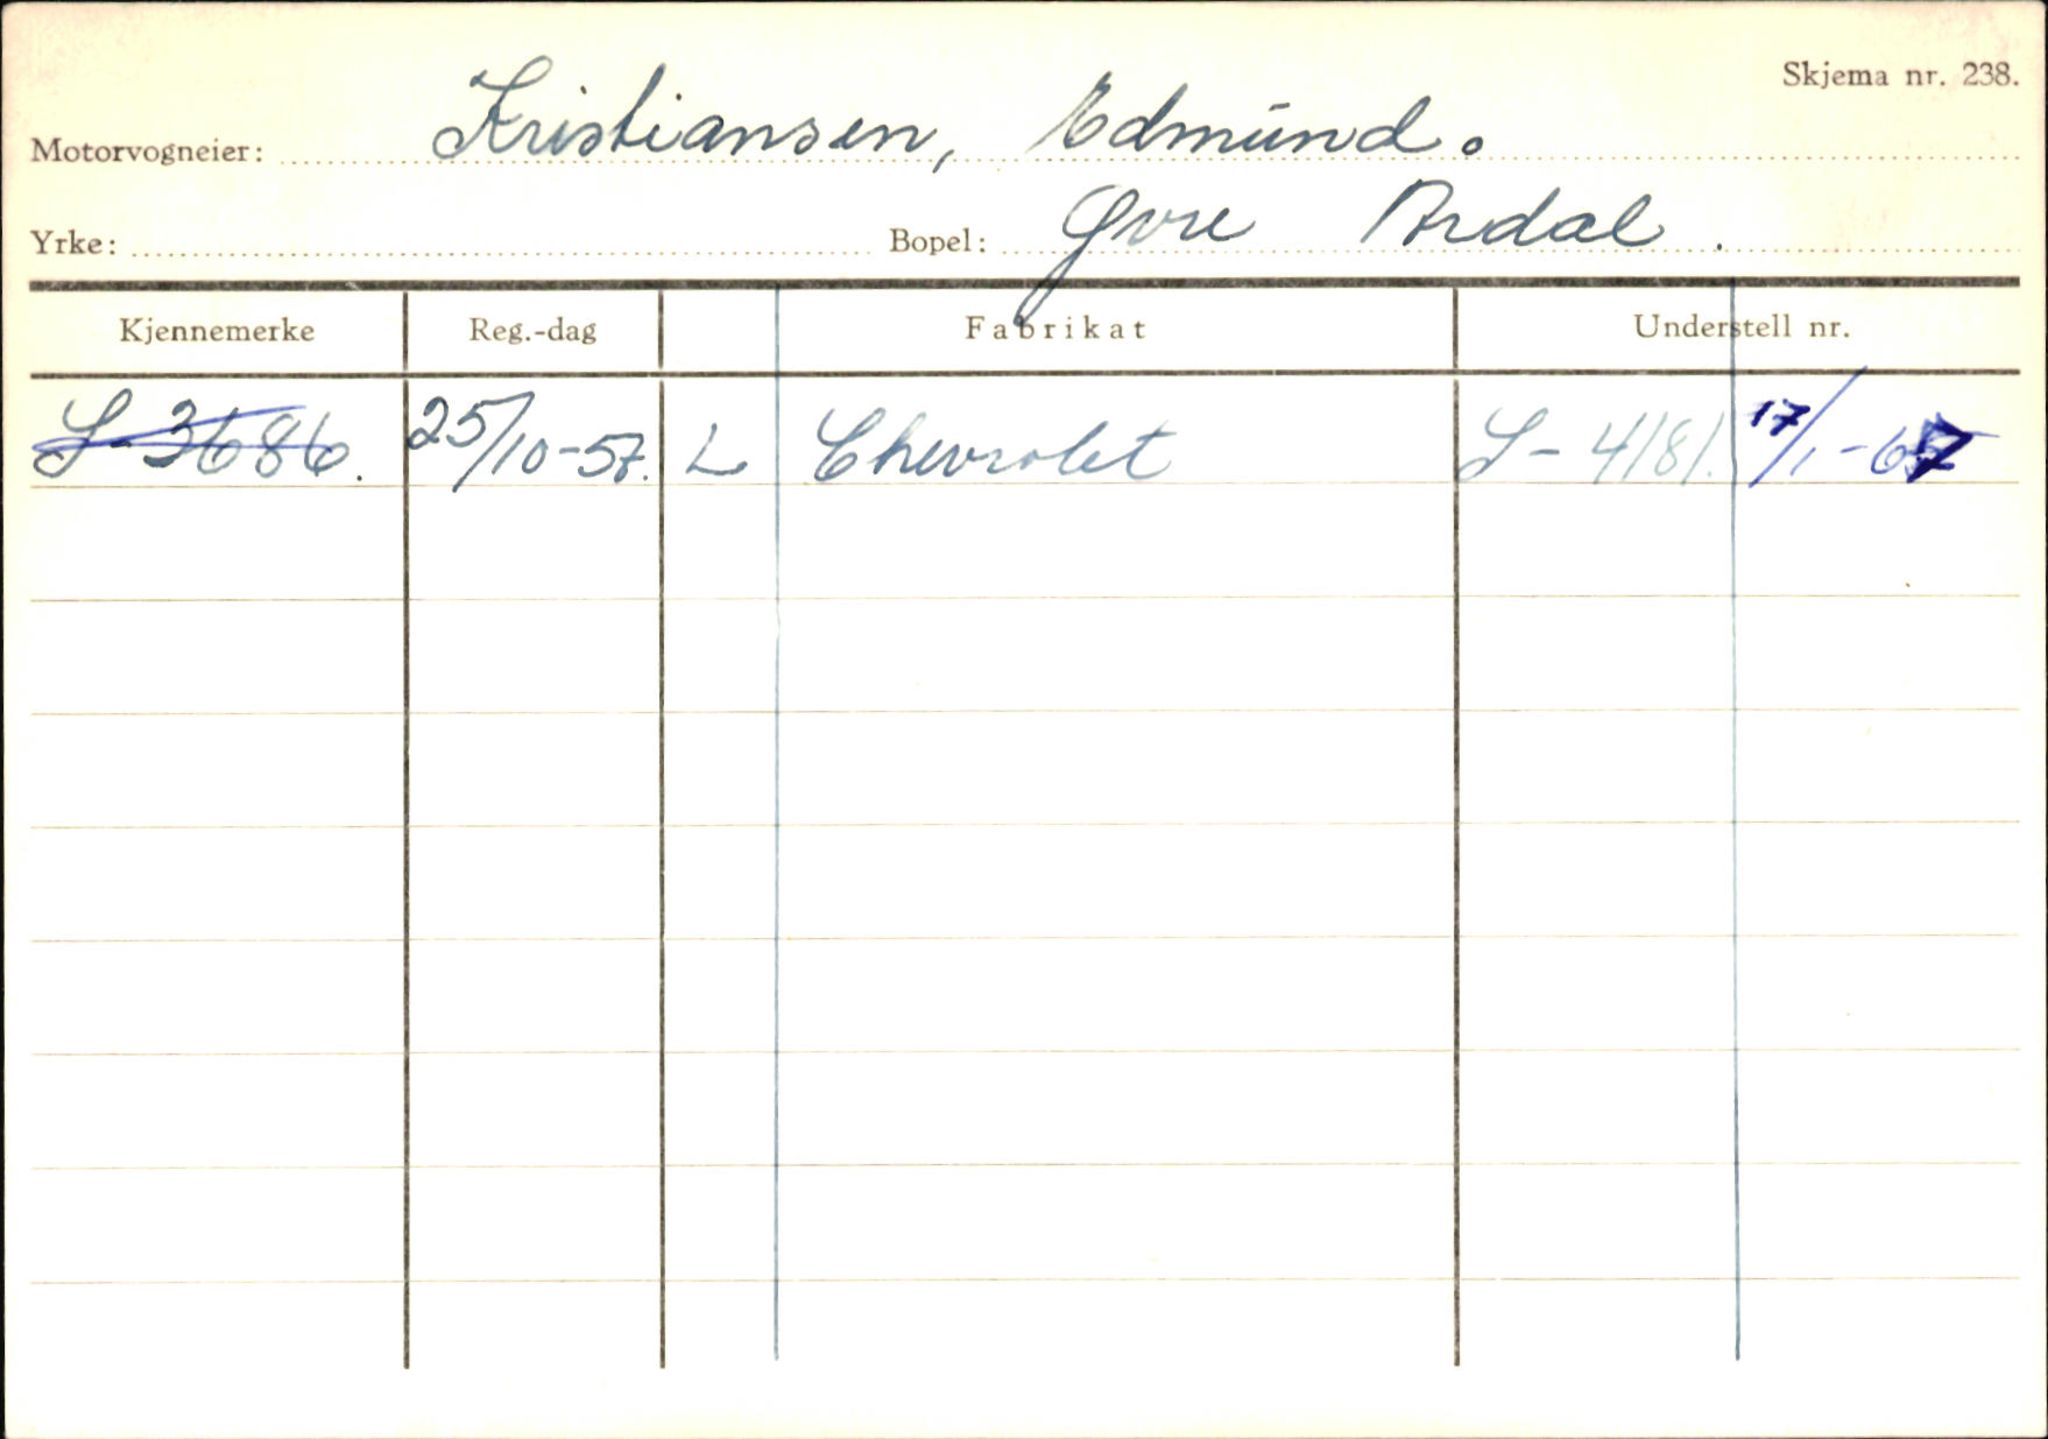 Skjema nr. 238.
Motorvogneier: Kristiansen, Edmund.
Yrke: Bopel: Øvre Årdal.
Kjennemerke Reg.-dag Fabrikat Understell nr.
S-3686. 25/10-57. L Chevrolet S-4181. 17/1-67